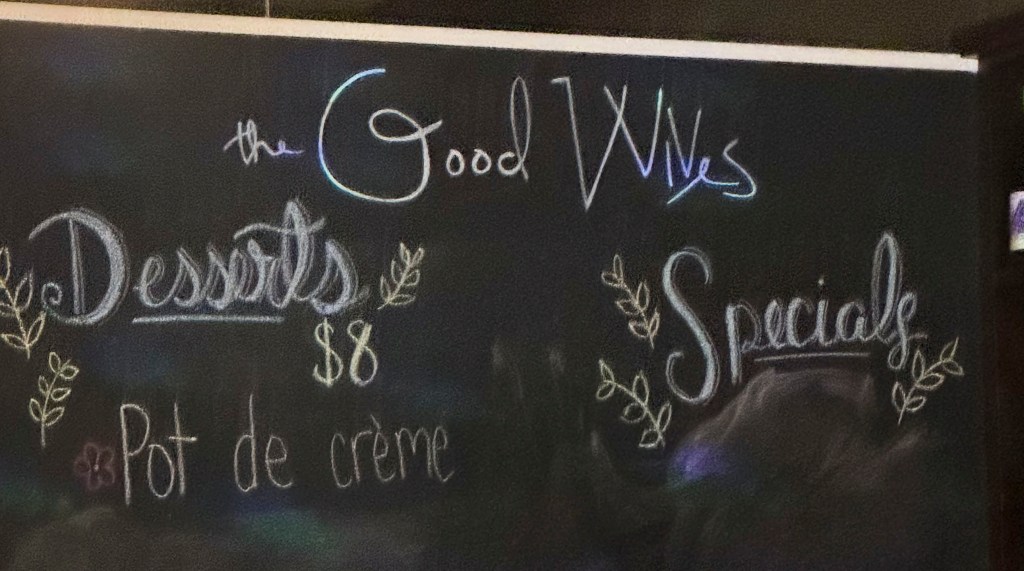 the Good Wives
Desserts
$8
Pot de crème
Specials